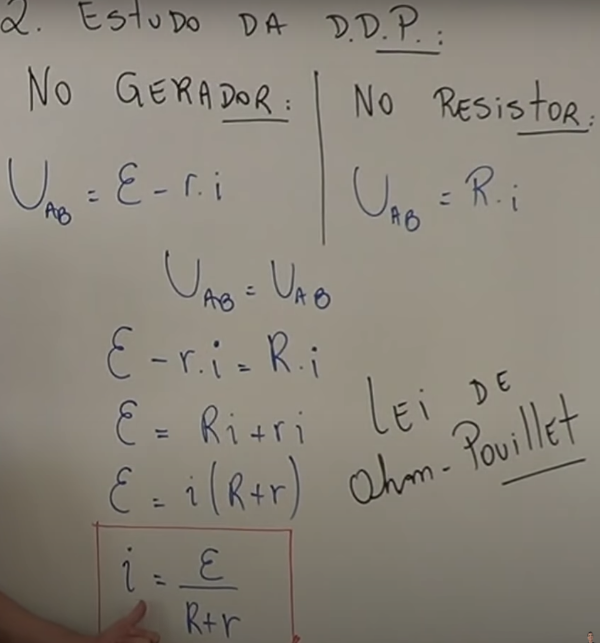 2. Estudo da D.D.P.:
No Gerador:
U_AB = ε - r.i
No Resistor:
U_AB = R.i
U_AB = U_AB
ε - r.i = R.i
ε = Ri + ri
ε = i(R+r)
i = ε/(R+r)
Lei de
Ohm-Pouillet